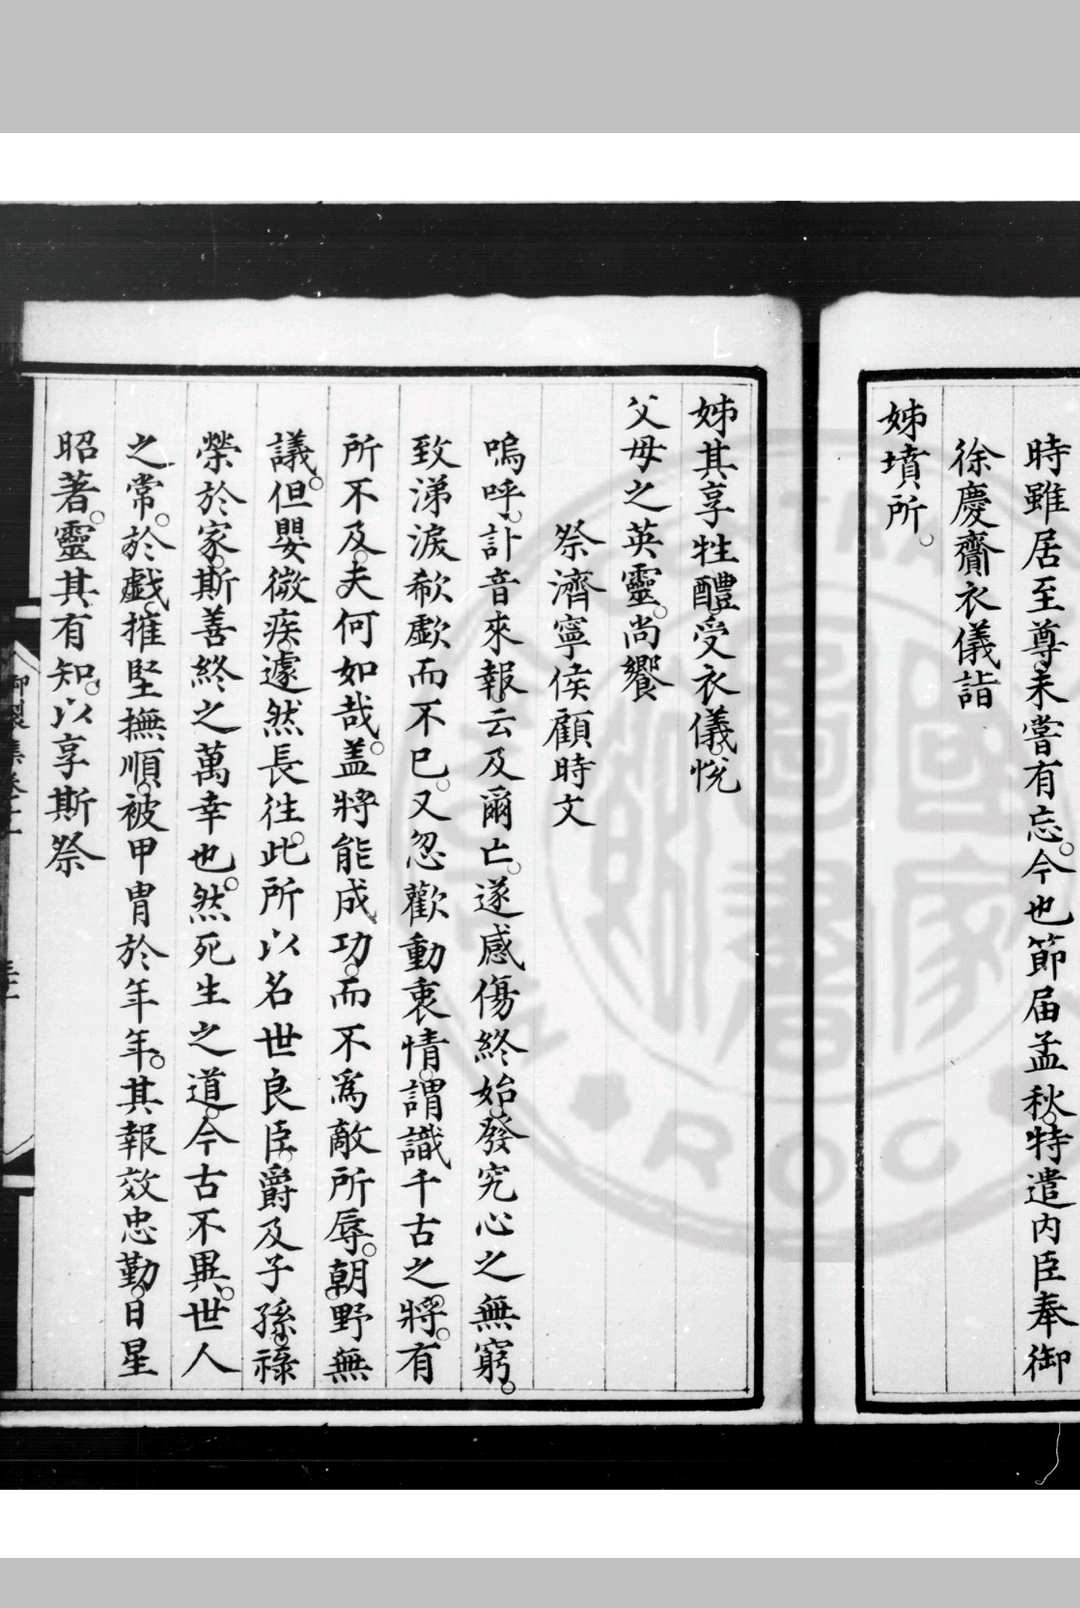 時雖居至尊未嘗有忘。今也節届孟秋。特遣内臣奉御
徐慶齎衣儀詣
姊墳所。
姊其享牲醴。受衣儀。悅
父母之英靈。尚饗
祭濟寧侯顧時文
嗚呼。訃音來報。云及爾亡。遂感傷終始。發究心之無窮。
致涕淚欷歔而不已。又忽歡動衷情。謂識千古之將。有
所不及。夫何如哉。盖將能成功。而不爲敵所辱。朝野無
議。但嬰微疾。遽然長往。此所以名世良臣。爵及子孫。祿
榮於家。斯善終之萬幸也。然死生之道。今古不異。世人
之常。於戲。摧堅撫順。被甲冑於年年。其報效忠勤。日星
昭著。靈其有知。以享斯祭
御製集卷